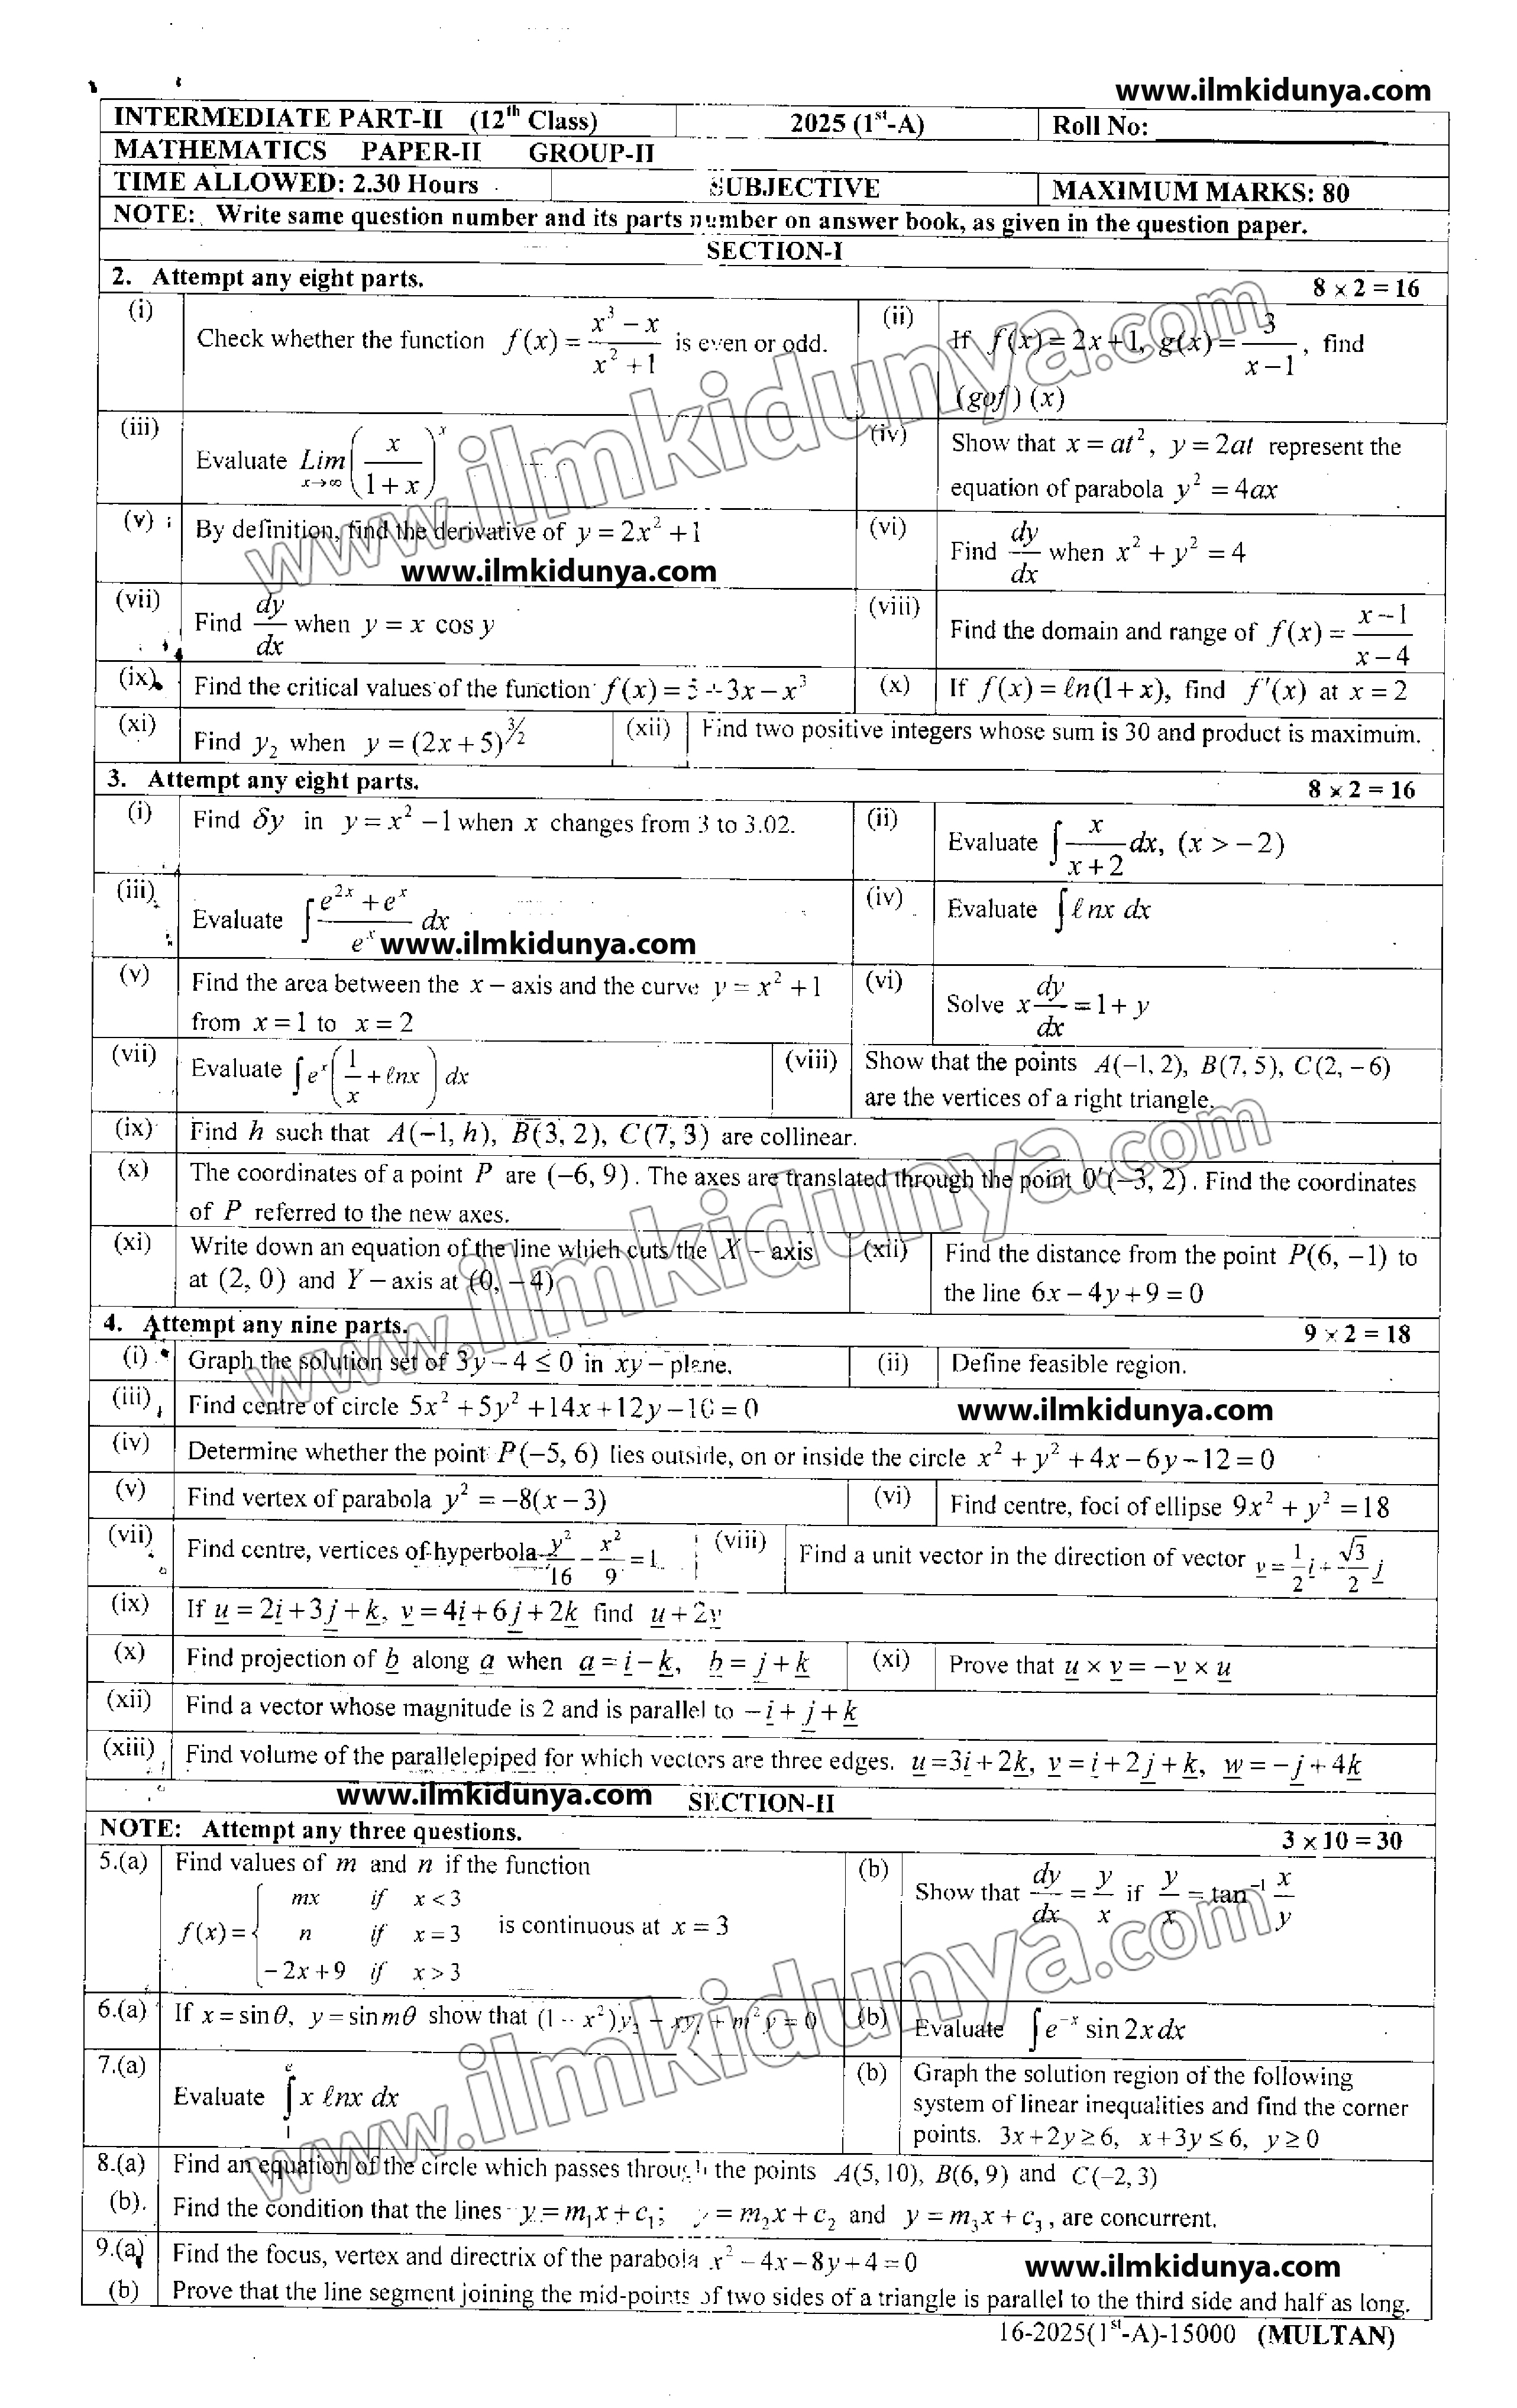 www.ilmkidunya.com
INTERMEDIATE PART-II (12th Class) 2025 (1st-A) Roll No: ____________
MATHEMATICS PAPER-II GROUP-II
TIME ALLOWED: 2.30 Hours SUBJECTIVE MAXIMUM MARKS: 80
NOTE: Write same question number and its parts number on answer book, as given in the question paper.
SECTION-I
2. Attempt any eight parts. 8 × 2 = 16
(i) Check whether the function f(x) = (x³ − x)/(x² + 1) is even or odd.
(ii) If f(x) = 2x+1, g(x) = 3/(x−1), find
(gof) (x)
(iii) Evaluate Lim x→∞ (x/(1+x))^x
(iv) Show that x = at², y = 2at represent the
equation of parabola y² = 4ax
(v) By definition, find the derivative of y = 2x² + 1
www.ilmkidunya.com
(vi) Find dy/dx when x² + y² = 4
(vii) Find dy/dx when y = x cos y
(viii) Find the domain and range of f(x) = (x−1)/(x−4)
(ix) Find the critical values of the function f(x) = 3x − x³
(x) If f(x) = ℓn(1+x), find f′(x) at x = 2
(xi) Find y₂ when y = (2x+5)^(3/2)
(xii) Find two positive integers whose sum is 30 and product is maximum.
3. Attempt any eight parts. 8 × 2 = 16
(i) Find δy in y = x² − 1 when x changes from 3 to 3.02.
(ii) Evaluate ∫ x/(x+2) dx, (x > −2)
(iii) Evaluate ∫ (e^(2x) + e^x)/e^x dx
www.ilmkidunya.com
(iv) Evaluate ∫ ℓnx dx
(v) Find the area between the x − axis and the curve y = x² + 1
from x = 1 to x = 2
(vi) Solve x dy/dx = 1 + y
(vii) Evaluate ∫ e^x (1/x + ℓnx) dx
(viii) Show that the points A(−1, 2), B(7, 5), C(2, −6)
are the vertices of a right triangle.
(ix) Find h such that A(−1, h), B(3, 2), C(7, 3) are collinear.
(x) The coordinates of a point P are (−6, 9). The axes are translated through the point 0′(−3, 2). Find the coordinates
of P referred to the new axes.
(xi) Write down an equation of the line which cuts the X − axis
at (2, 0) and Y − axis at (0, −4)
(xii) Find the distance from the point P(6, −1) to
the line 6x − 4y + 9 = 0
4. Attempt any nine parts. 9 × 2 = 18
(i) Graph the solution set of 3y − 4 ≤ 0 in xy − plane.
(ii) Define feasible region.
(iii) Find centre of circle 5x² + 5y² + 14x + 12y − 10 = 0
www.ilmkidunya.com
(iv) Determine whether the point P(−5, 6) lies outside, on or inside the circle x² + y² + 4x − 6y − 12 = 0
(v) Find vertex of parabola y² = −8(x − 3)
(vi) Find centre, foci of ellipse 9x² + y² = 18
(vii) Find centre, vertices of hyperbola y²/16 − x²/9 = 1
(viii) Find a unit vector in the direction of vector v = 1/2 i + √3/2 j
(ix) If u = 2i + 3j + k, v = 4i + 6j + 2k find u + 2v
(x) Find projection of b along a when a = i − k, b = j + k
(xi) Prove that u × v = −v × u
(xii) Find a vector whose magnitude is 2 and is parallel to −i + j + k
(xiii) Find volume of the parallelepiped for which vectors are three edges. u = 3i + 2k, v = i + 2j + k, w = −j + 4k
www.ilmkidunya.com
SECTION-II
NOTE: Attempt any three questions. 3 × 10 = 30
5.(a) Find values of m and n if the function
f(x) = { mx if x < 3
n if x = 3 is continuous at x = 3
−2x + 9 if x > 3
(b) Show that dy/dx = y/x if y/x = tan⁻¹ x/y
6.(a) If x = sin θ, y = sin mθ show that (1 − x²)y₂ − xy₁ + m²y = 0
(b) Evaluate ∫ e^(−x) sin 2x dx
7.(a) Evaluate ∫₁^e x ℓnx dx
(b) Graph the solution region of the following
system of linear inequalities and find the corner
points. 3x + 2y ≥ 6, x + 3y ≤ 6, y ≥ 0
8.(a) Find an equation of the circle which passes through the points A(5, 10), B(6, 9) and C(−2, 3)
(b). Find the condition that the lines y = m₁x + c₁; y = m₂x + c₂ and y = m₃x + c₃, are concurrent.
9.(a) Find the focus, vertex and directrix of the parabola x² − 4x − 8y + 4 = 0
www.ilmkidunya.com
(b) Prove that the line segment joining the mid-points of two sides of a triangle is parallel to the third side and half as long.
16-2025(1st-A)-15000 (MULTAN)
www.ilmkidunya.com
www.ilmkidunya.com
www.ilmkidunya.com